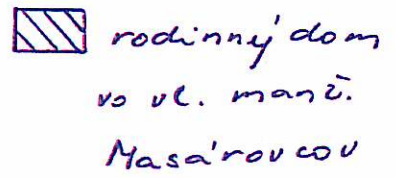 rodinný dom
vo vl. manž.
Masárovcov